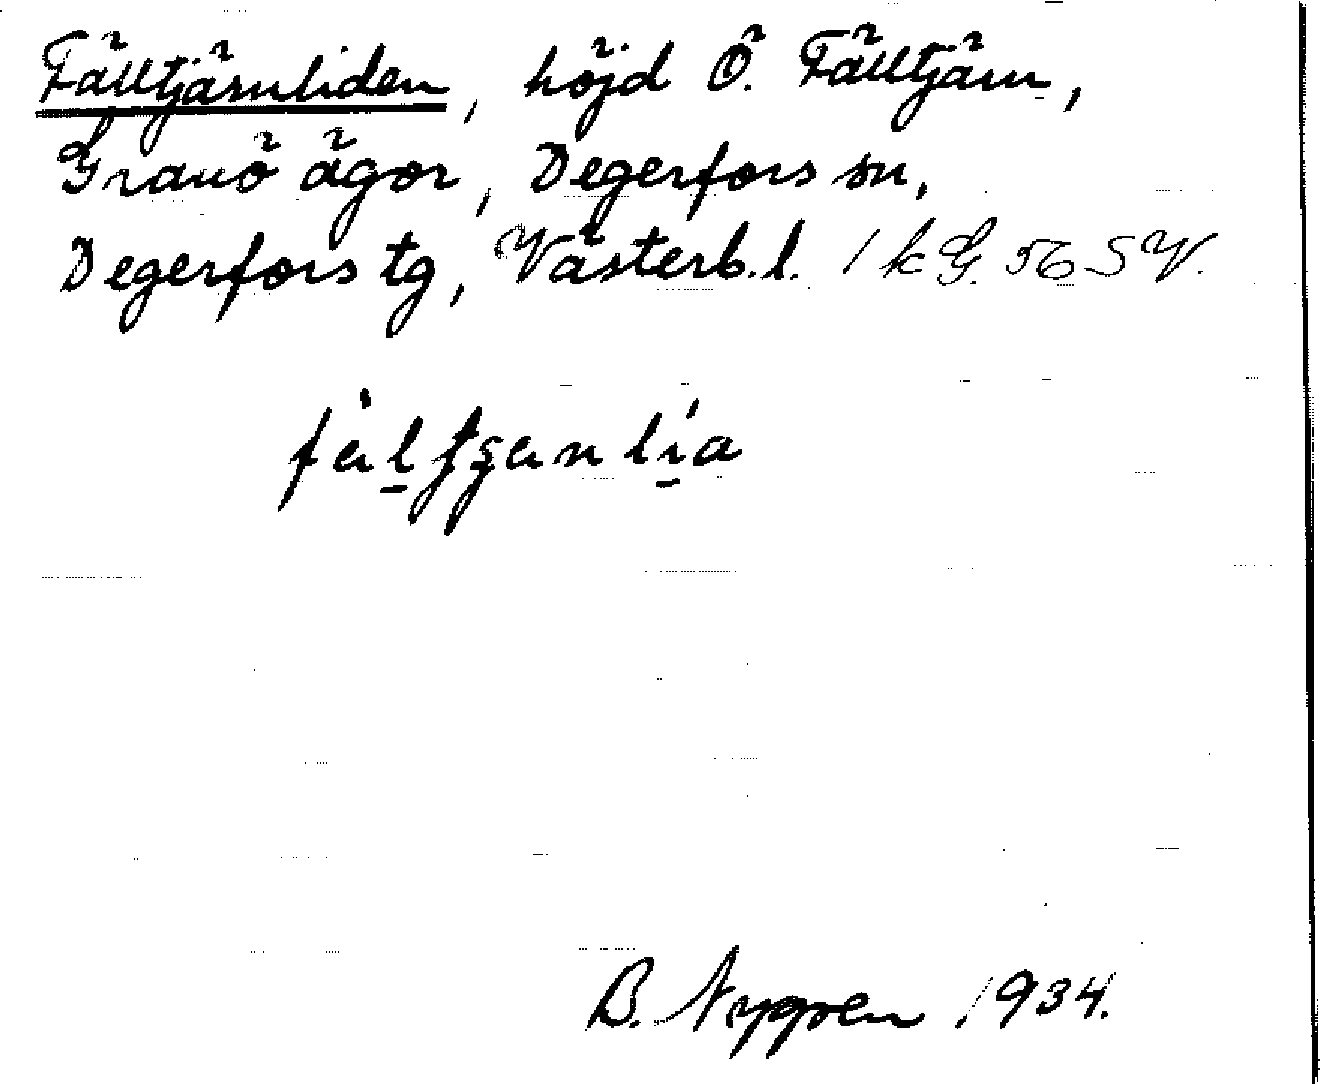 Fälltjärnliden, höjd Ö. Fälltjärn,
Granö ägor, Degerfors sn,
Degerfors tg, Västerb.l. / kG. 56 SV.
B. Nygren 1934.